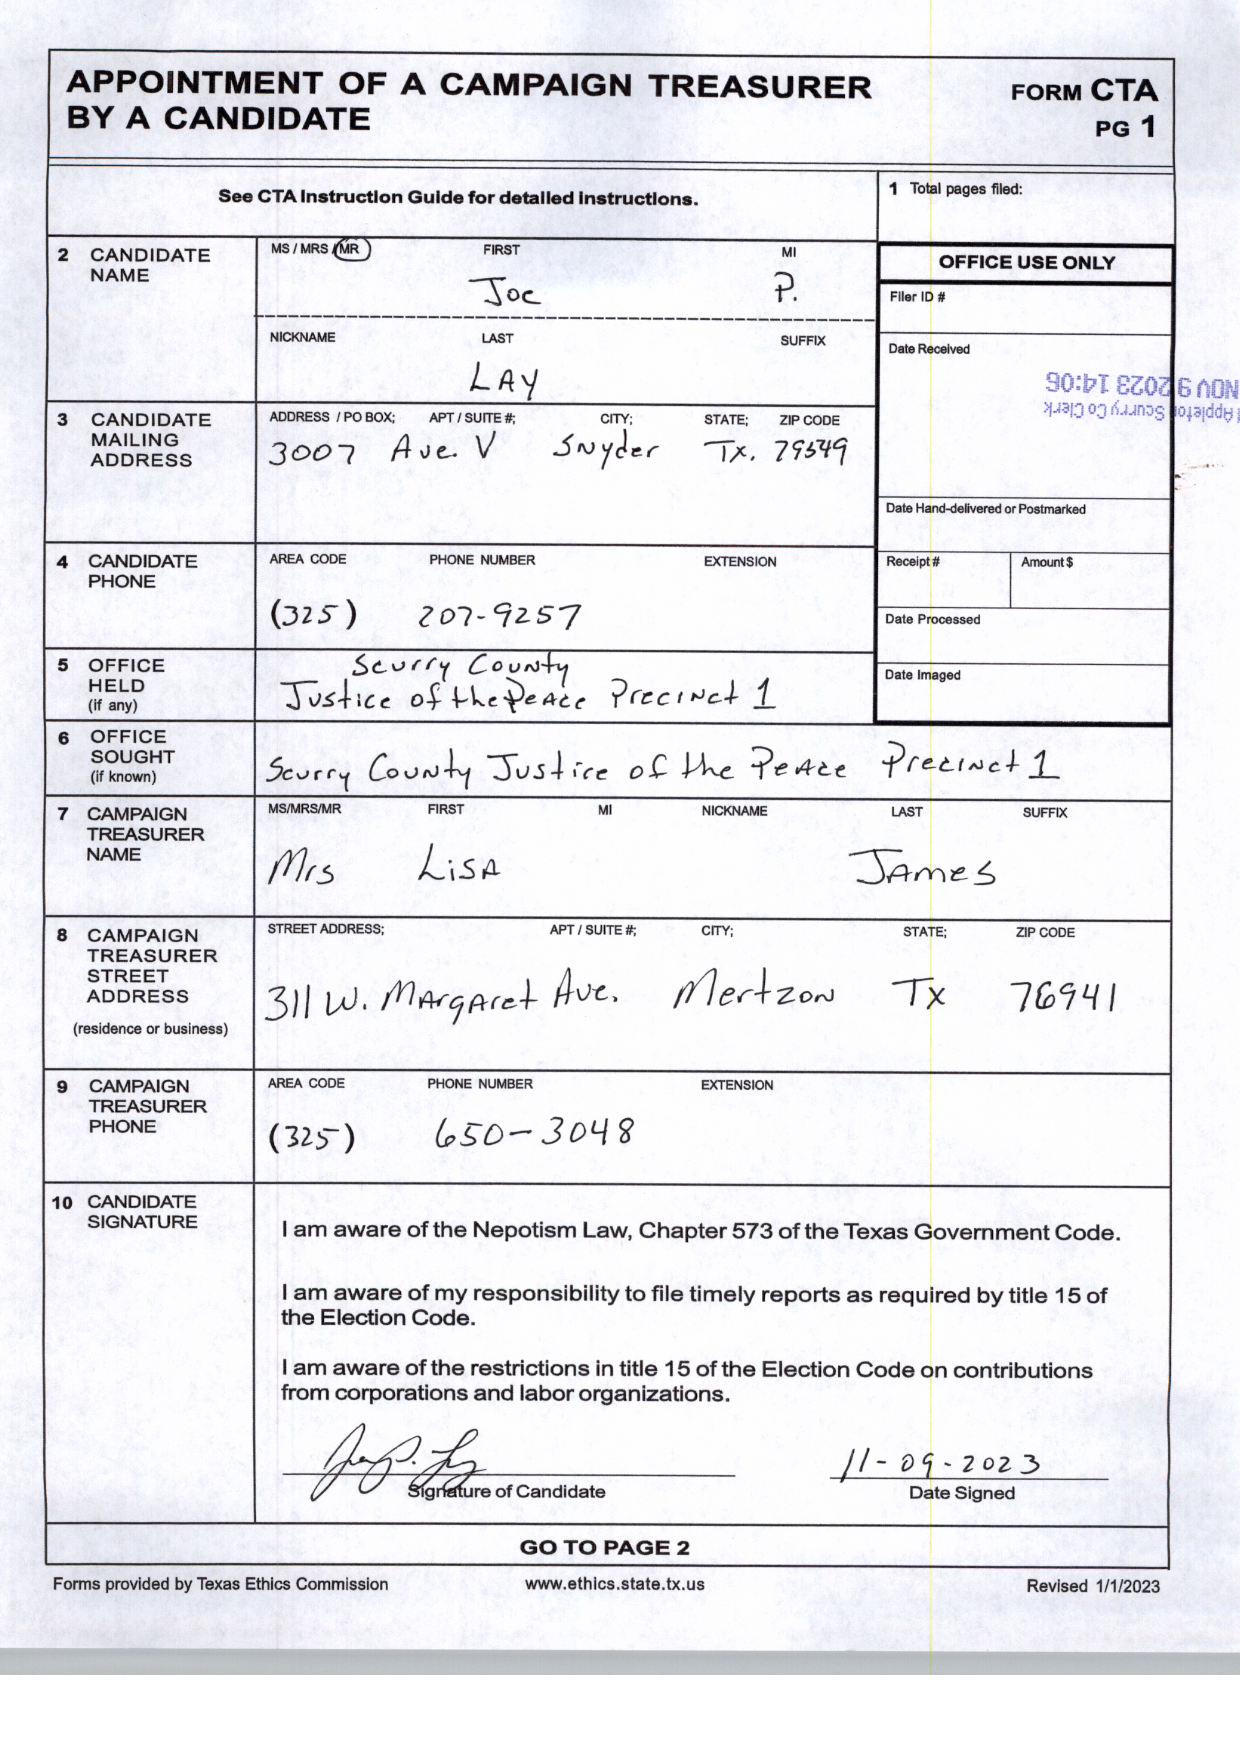 APPOINTMENT OF A CAMPAIGN TREASURER
BY A CANDIDATE
FORM CTA
PG 1
See CTA Instruction Guide for detailed instructions.
1 Total pages filed:
2 CANDIDATE
NAME
MS / MRS / MR FIRST MI
Joe P.
NICKNAME LAST SUFFIX
LAY
OFFICE USE ONLY
Filer ID #
Date Received
NOV 9 2023 14:06
Scurry Co Clerk
Date Hand-delivered or Postmarked
Receipt # Amount $
Date Processed
Date Imaged
3 CANDIDATE
MAILING
ADDRESS
ADDRESS / PO BOX; APT / SUITE #; CITY; STATE; ZIP CODE
3007 Ave. V Snyder Tx. 79549
4 CANDIDATE
PHONE
AREA CODE PHONE NUMBER EXTENSION
(325) 207-9257
5 OFFICE
HELD
(if any)
Scurry County
Justice of the Peace Precinct 1
6 OFFICE
SOUGHT
(if known)
Scurry County Justice of the Peace Precinct 1
7 CAMPAIGN
TREASURER
NAME
MS/MRS/MR FIRST MI NICKNAME LAST SUFFIX
Mrs Lisa James
8 CAMPAIGN
TREASURER
STREET
ADDRESS
(residence or business)
STREET ADDRESS; APT / SUITE #; CITY; STATE; ZIP CODE
311 W. Margaret Ave. Mertzon Tx 76941
9 CAMPAIGN
TREASURER
PHONE
AREA CODE PHONE NUMBER EXTENSION
(325) 650-3048
10 CANDIDATE
SIGNATURE
I am aware of the Nepotism Law, Chapter 573 of the Texas Government Code.
I am aware of my responsibility to file timely reports as required by title 15 of
the Election Code.
I am aware of the restrictions in title 15 of the Election Code on contributions
from corporations and labor organizations.
11-09-2023
Signature of Candidate
Date Signed
GO TO PAGE 2
Forms provided by Texas Ethics Commission www.ethics.state.tx.us Revised 1/1/2023